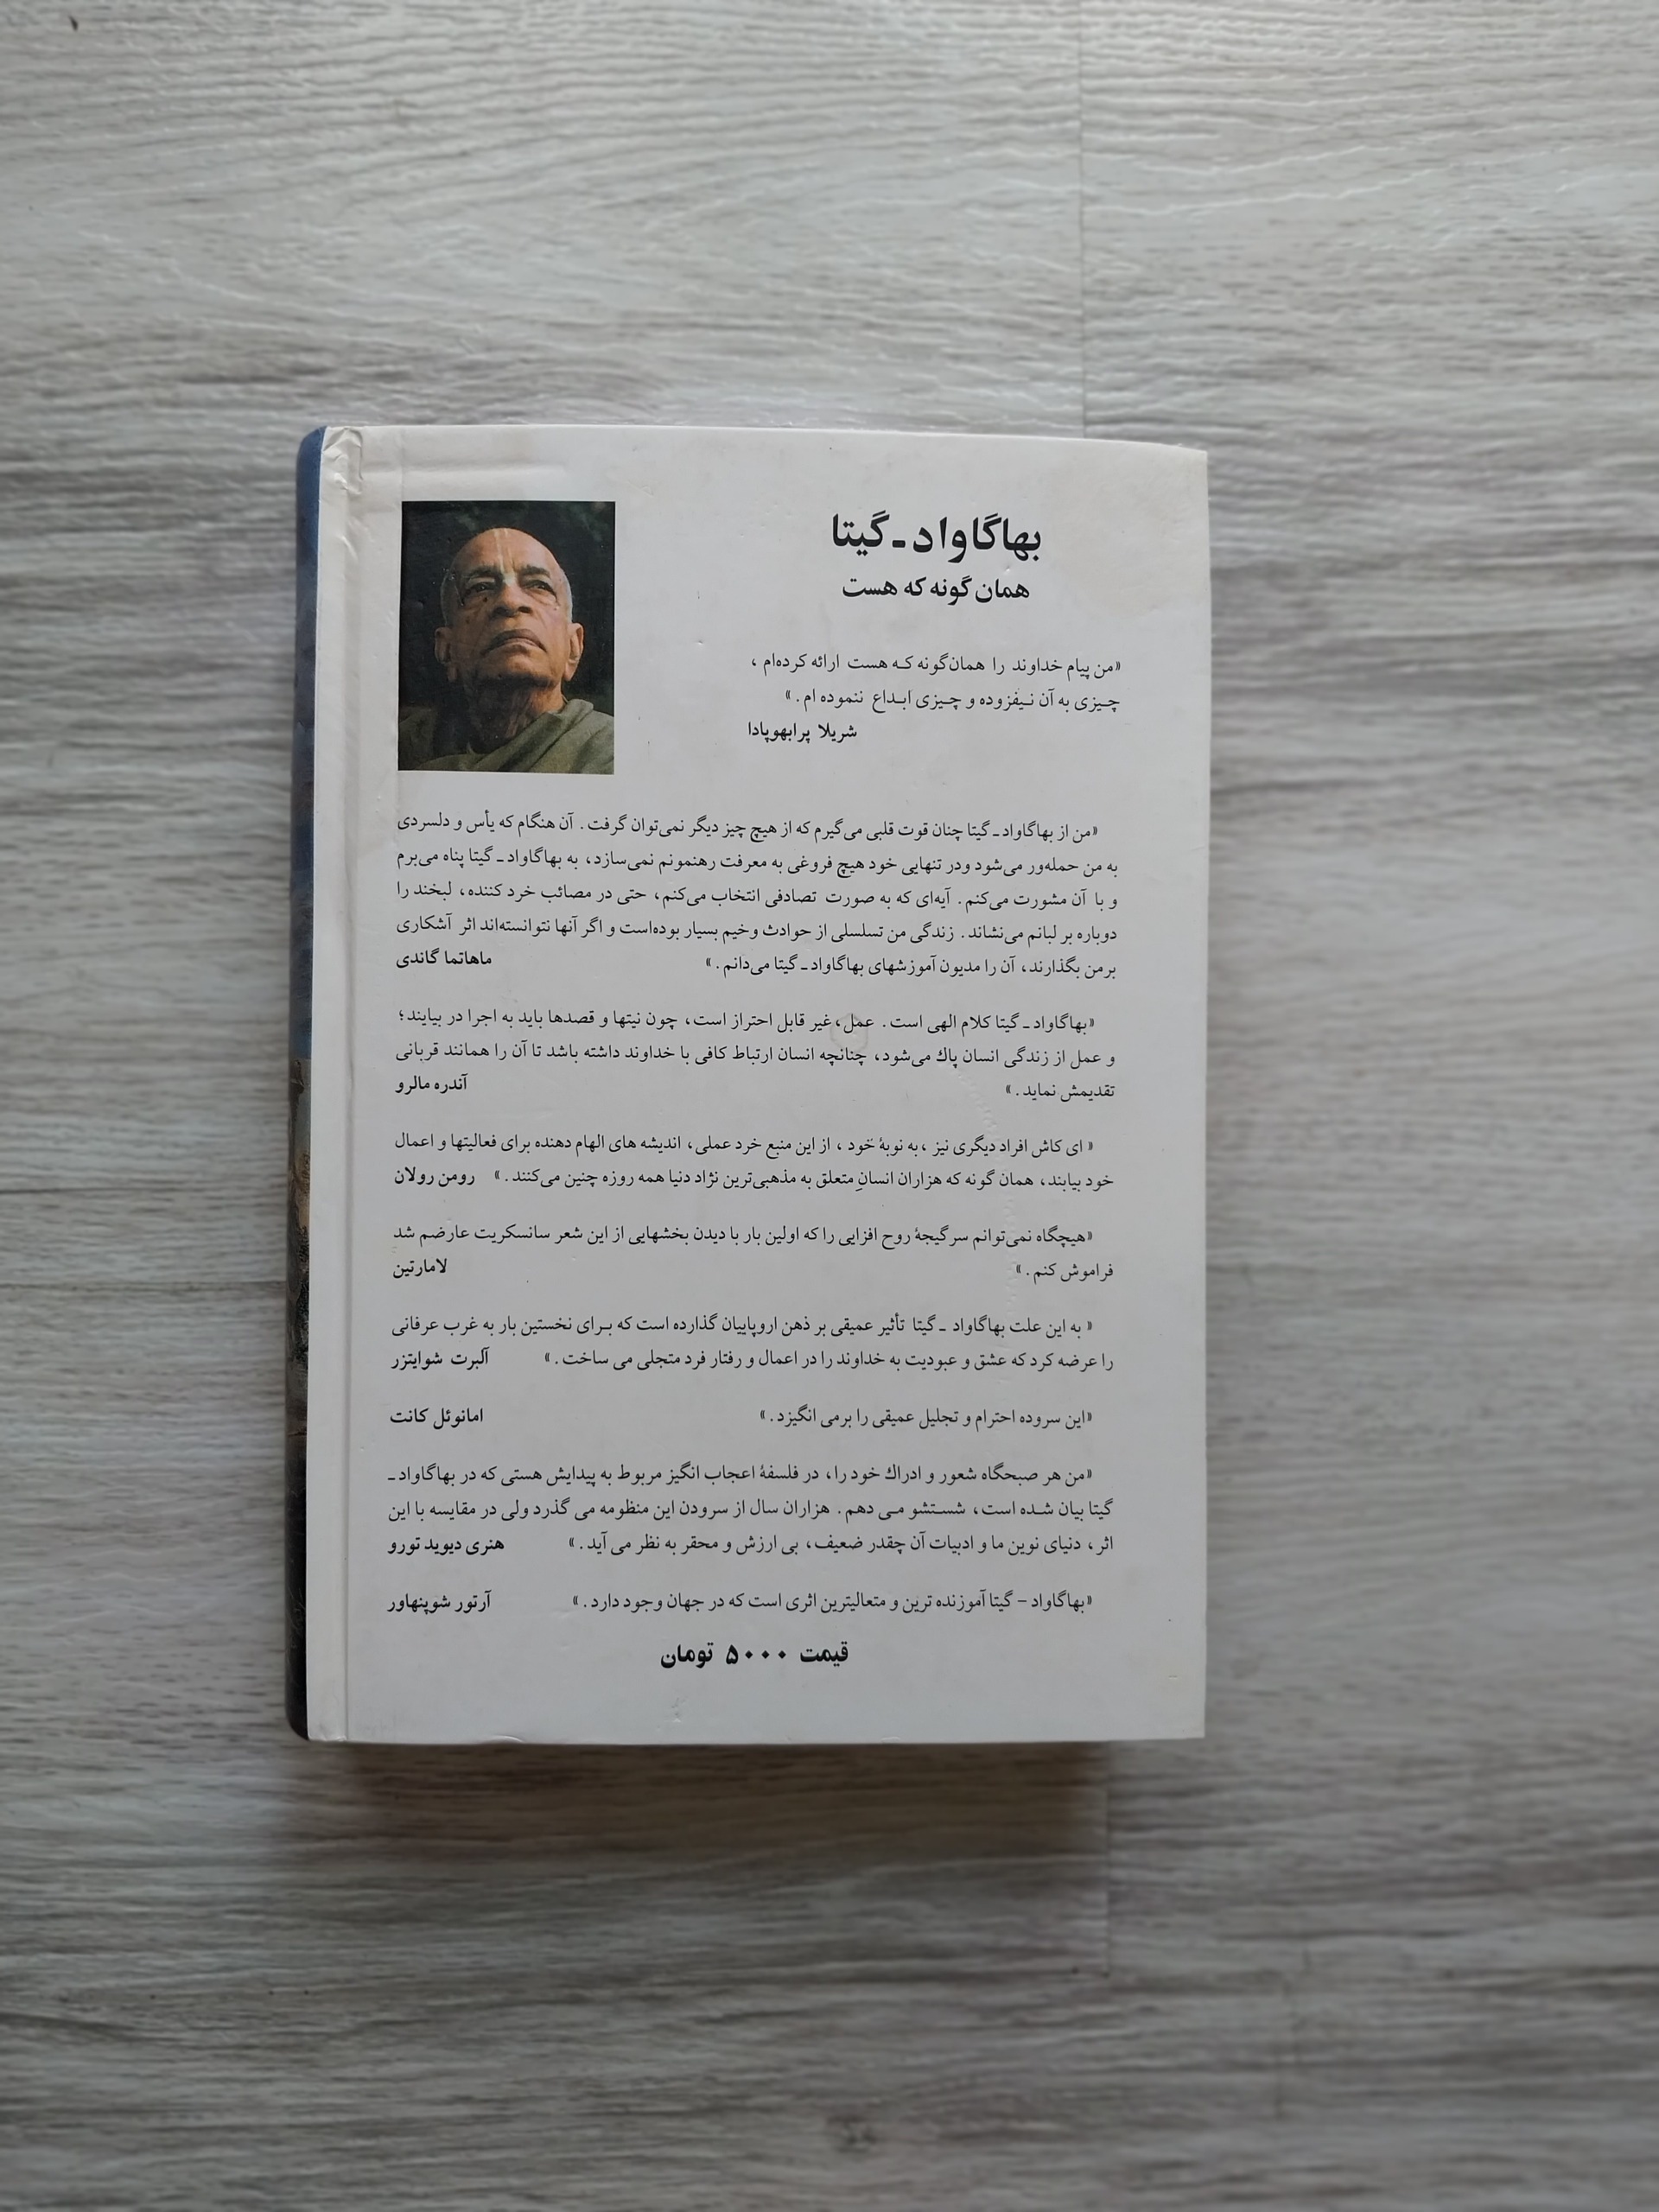 بهاگاواد ـ گیتا
همان گونه که هست
«من پیام خداوند را همان‌گونه کـه هست ارائه کرده‌ام ،
چـیزی به آن نـیفزوده و چـیزی ابـداع ننموده ام . »
شریلا پرابهوپادا
«من از بهاگاواد ـ گیتا چنان قوت قلبی می‌گیرم که از هیچ چیز دیگر نمی‌توان گرفت . آن هنگام که یأس و دلسردی
به من حمله‌ور می‌شود ودر تنهایی خود هیچ فروغی به معرفت رهنمونم نمی‌سازد، به بهاگاواد ـ گیتا پناه می‌برم
و با آن مشورت می‌کنم . آیه‌ای که به صورت تصادفی انتخاب می‌کنم، حتی در مصائب خرد کننده، لبخند را
دوباره بر لبانم می‌نشاند. زندگی من تسلسلی از حوادث وخیم بسیار بوده‌است و اگر آنها نتوانسته‌اند اثر آشکاری
برمن بگذارند، آن را مدیون آموزشهای بهاگاواد ـ گیتا می‌دانم . » ماهاتما گاندی
«بهاگاواد ـ گیتا کلام الهی است . عمل، غیر قابل احتراز است، چون نیتها و قصدها باید به اجرا در بیایند؛
و عمل از زندگی انسان پاك می‌شود، چنانچه انسان ارتباط کافی با خداوند داشته باشد تا آن را همانند قربانی
تقدیمش نماید . » آندره مالرو
« ای کاش افراد دیگری نیز ،به نوبهٔ خود ، از این منبع خرد عملی، اندیشه های الهام دهنده برای فعالیتها و اعمال
خود بیابند، همان گونه که هزاران انسانِ متعلق به مذهبی‌ترین نژاد دنیا همه روزه چنین می‌کنند . » رومن رولان
«هیچگاه نمی‌توانم سرگیجهٔ روح افزایی را که اولین بار با دیدن بخشهایی از این شعر سانسکریت عارضم شد
فراموش کنم . » لامارتین
« به این علت بهاگاواد ـ گیتا تأثیر عمیقی بر ذهن اروپاییان گذارده است که بـرای نخستین بار به غرب عرفانی
را عرضه کرد که عشق و عبودیت به خداوند را در اعمال و رفتار فرد متجلی می ساخت . » آلبرت شوایتزر
«این سروده احترام و تجلیل عمیقی را برمی انگیزد . » امانوئل کانت
«من هر صبحگاه شعور و ادراك خود را، در فلسفهٔ اعجاب انگیز مربوط به پیدایش هستی که در بهاگاواد ـ
گیتا بیان شـده است، شسـتشو مـی دهم . هزاران سال از سرودن این منظومه می گذرد ولی در مقایسه با این
اثر، دنیای نوین ما و ادبیات آن چقدر ضعیف، بی ارزش و محقر به نظر می آید . » هنری دیوید تورو
«بهاگاواد – گیتا آموزنده ترین و متعالیترین اثری است که در جهان وجود دارد . » آرتور شوپنهاور
قیمت ۵۰۰۰ تومان